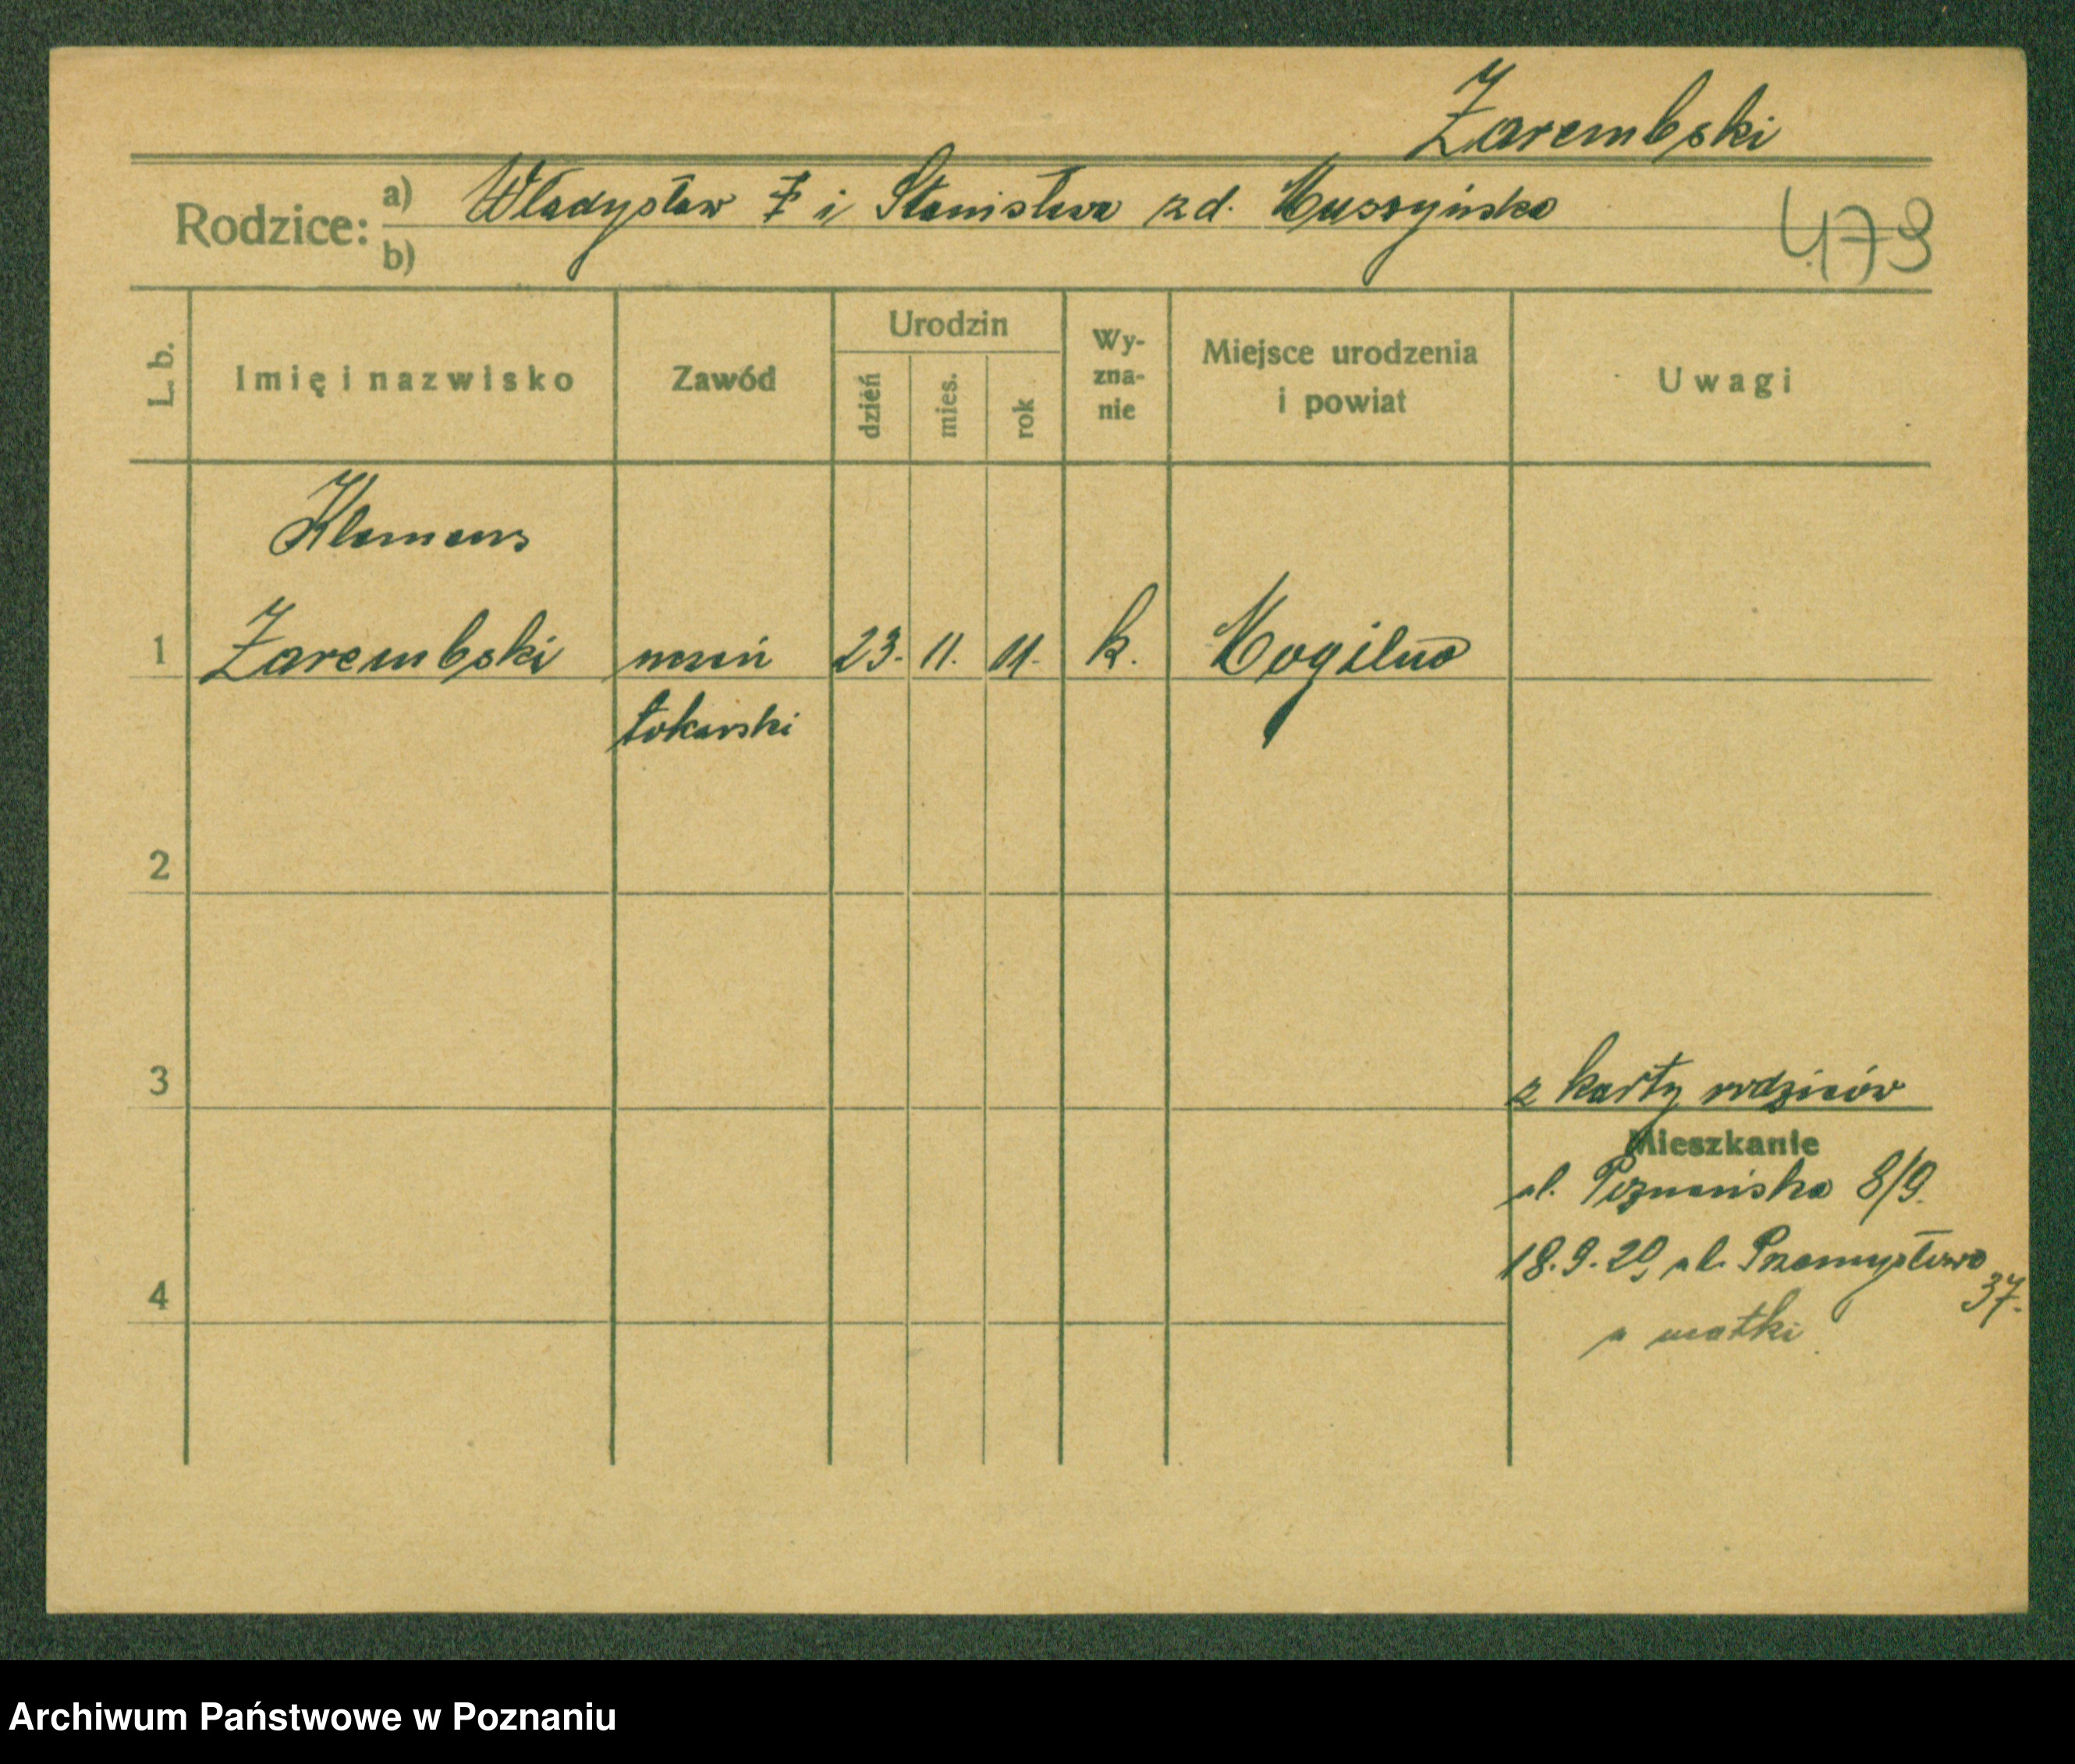 Zarembski
Rodzice: a) Władysław Z i Stanisława z d. Muszyńska
b)
479
L. b. Imię i nazwisko Zawód Urodzin dzień mies. rok Wy-zna-nie Miejsce urodzenia i powiat Uwagi
Klemens
1 Zarembski uczeń 23. 11. 11. k. Mogilno
tokarski
2
3 z karty rodziców
Mieszkanie
ul. Poznańska 8/9.
18.9.29, ul. Przemysłowa
4 37.
u matki
Archiwum Państwowe w Poznaniu